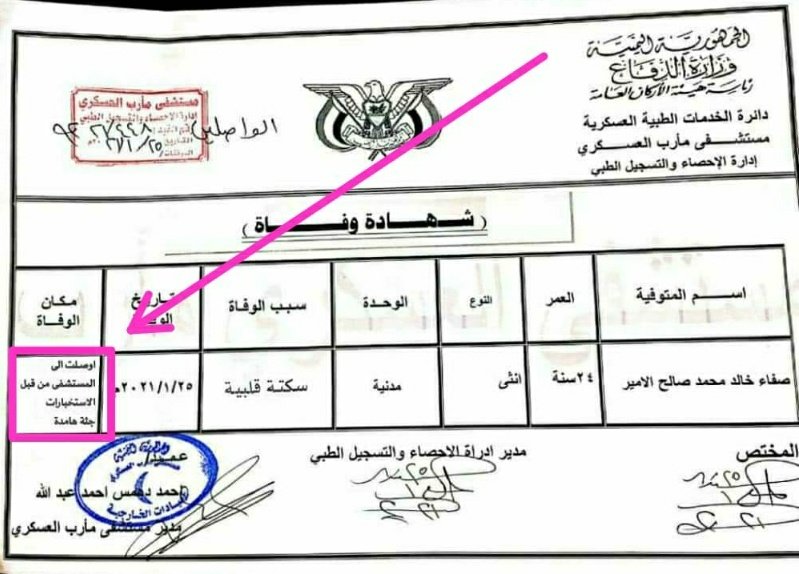 الجمهورية اليمنية
وزارة الدفاع
رئاسة هيئة الأركان العامة
دائرة الخدمات الطبية العسكرية
مستشفى مأرب العسكري
إدارة الإحصاء والتسجيل الطبي
مستشفى مأرب العسكري
إدارة الاحصاء والتسجيل الطبي
الواصلين
(شهادة وفاة)
اسم المتوفية العمر النوع الوحدة سبب الوفاة تاريخ مكان الوفاة
صفاء خالد محمد صالح الامير ٢٤سنة انثى مدنية سكتة قلبية ٢٠٢١/١/٢٥م
اوصلت الى
المستشفى من قبل
الاستخبارات
جثة هامدة
المختص
مدير ادراة الاحصاء والتسجيل الطبي
عميد/
احمد دهمس احمد عبد الله
مدير مستشفى مأرب العسكري